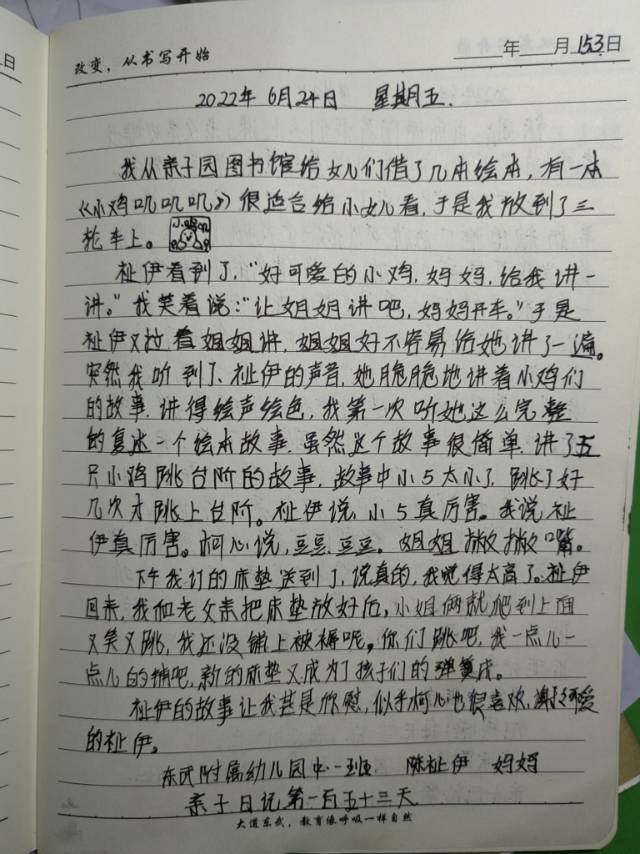 日
改变，从书写开始
年 月 153日
2022年 6月24日 星期五.
我从亲子园图书馆给女儿们借了几本绘本，有一本
《小鸡叽叽叽》很适合给小女儿看，于是我放到了三
轮车上。
祉伊看到了，“好可爱的小鸡，妈妈，给我讲一
讲。”我笑着说：“让姐姐讲吧，妈妈开车。”于是
祉伊又拉着姐姐讲，姐姐好不容易给她讲了一遍。
突然我听到了、祉伊的声音，她脆脆地讲着小鸡们
的故事，讲得绘声绘色，我第一次听她这么完整
的复述一个绘本故事，虽然这个故事很简单，讲了五
只小鸡跳台阶的故事，故事中小5太小了，跳了好
几次才跳上台阶。祉伊说，小5真厉害。我说，祉
伊真厉害。柯心说，豆豆，豆豆。姐姐撇撇嘴。
下午我订的床垫送到了，说真的，我觉得太高了。祉伊
回来，我和老父亲把床垫放好后，小姐俩就爬到上面
又笑又跳，我还没铺上被褥呢。你们跳吧，我一点儿一
点儿的铺吧，新的床垫又成为了孩子们的弹簧床。
祉伊的故事让我甚是欣慰，似乎柯心也很喜欢，谢谢可爱
的祉伊。
东武附属幼儿园中一班 陈祉伊 妈妈
亲子日记第一百五十三天
大道东武，教育像呼吸一样自然